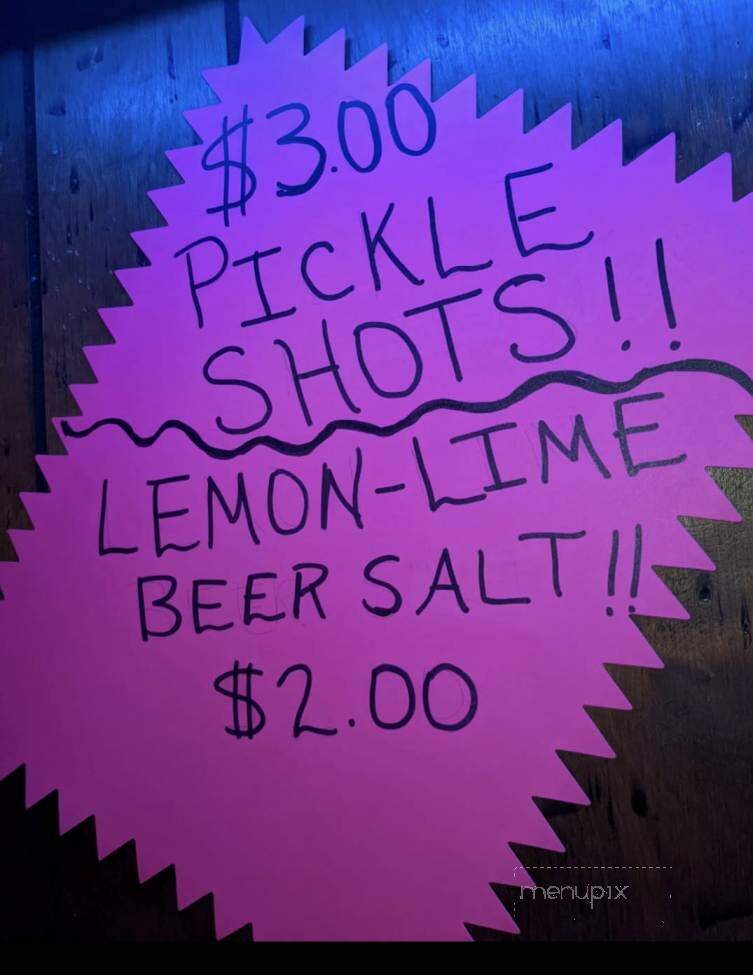 $3.00
PICKLE
SHOTS!!
LEMON-LIME
BEER SALT!!
$2.00
menupix